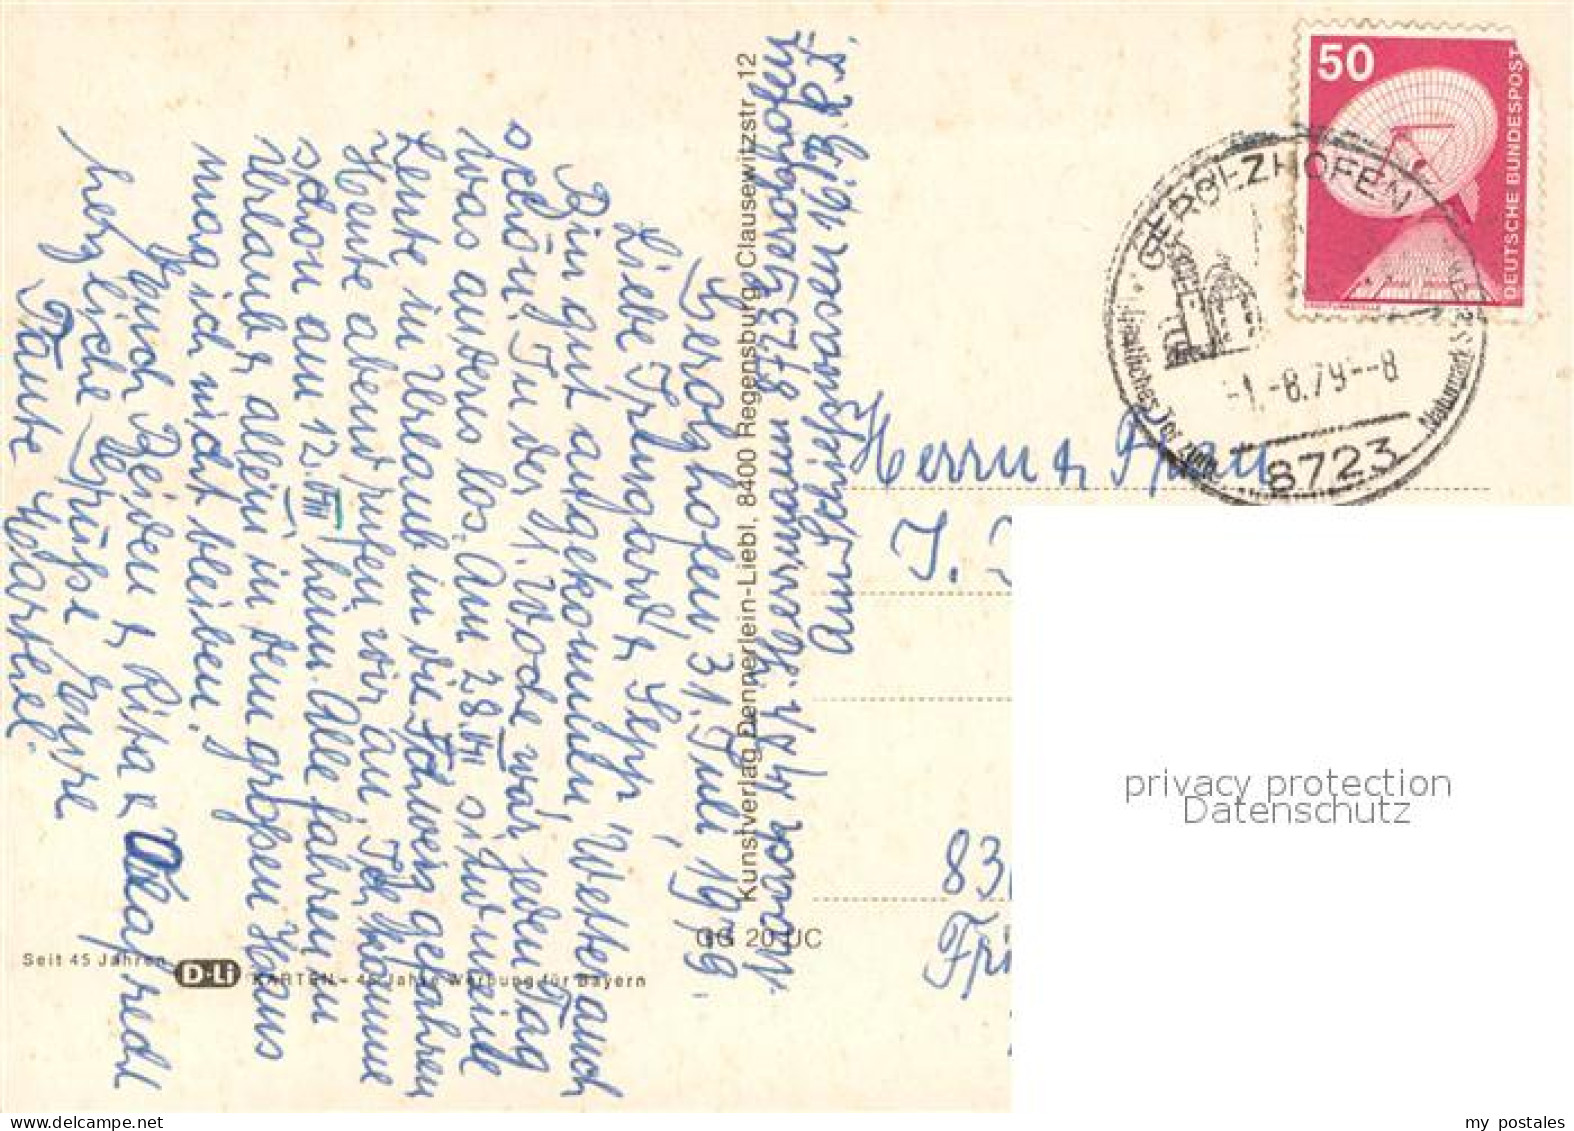 Gerolzhofen 31. Juli 1979
Liebe Irmgard & Sepp! Wetter auch
Bin gut angekommen,
schön! In der 1. Woche war jeden Tag
was anderes los. Am 28.VII sind meine
Leute in Urlaub in die Schweiz gefahren
Heute abend rufen wir an. Ich komme
schon am 12.VIII heim. Alle fahren in
Urlaub & allein in dem großen Haus
mag ich nicht bleiben.
Euch Beiden & Rita &
herzliche Grüße Eure
Tante
Kunstverlag Dennerlein-Liebl, 8400 Regensburg, Clausewitzstr. 12
Herrmann 8723 Gerolzhofen
Am Schießwasen 16
GG 20 UC
Seit 45 Jahren D-Li KARTEN - 45 Jahre Werbung für Bayern
50
DEUTSCHE BUNDESPOST
GEROLZHOFEN
-1.-8.79--8
8723
Herrn & Frau
J.
83
privacy protection
Datenschutz
my postales